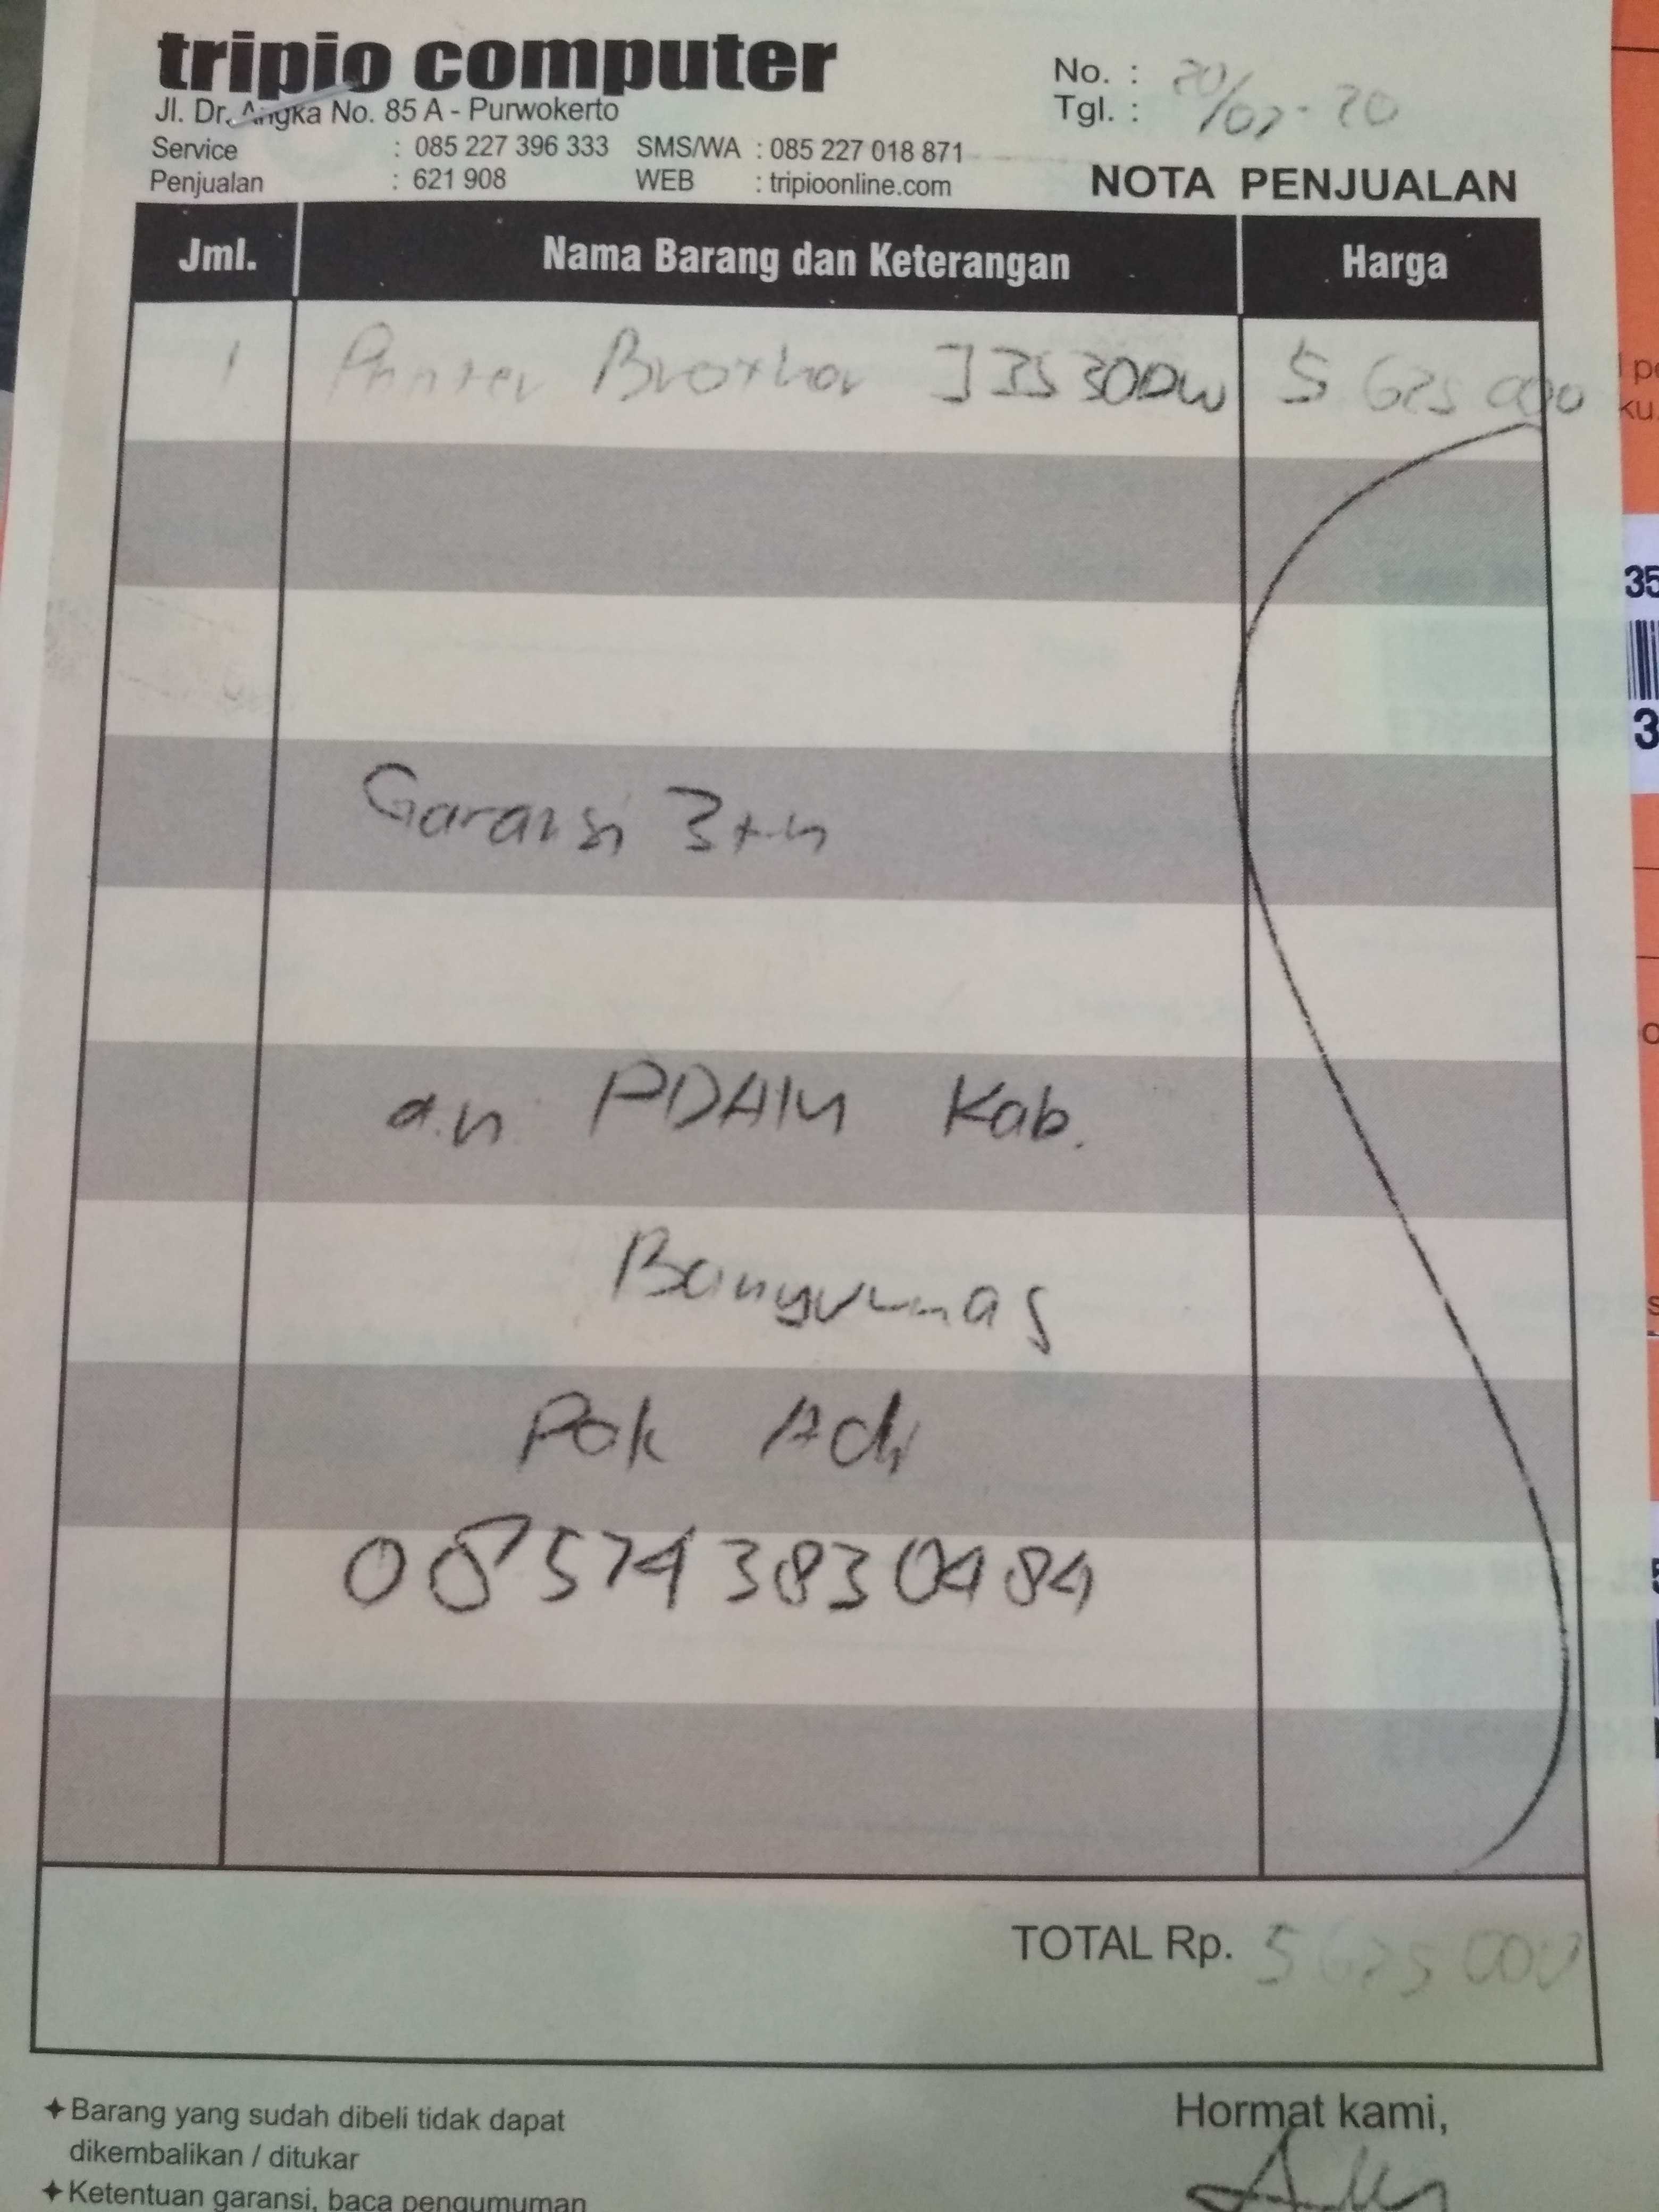 tripio computer
Jl. Dr. Angka No. 85 A - Purwokerto
Service : 085 227 396 333 SMS/WA : 085 227 018 871
Penjualan : 621 908 WEB : tripioonline.com
No. :
Tgl. : 20/07-20
NOTA PENJUALAN
Jml. Nama Barang dan Keterangan Harga
1 Printer Brother J3530DW 5 625 000
Garansi 3 thn
a.n PDAM Kab.
Banyumas
Pak Adi
085743830484
TOTAL Rp. 5 625 000
✦ Barang yang sudah dibeli tidak dapat
dikembalikan / ditukar
✦ Ketentuan garansi, baca pengumuman
Hormat kami,
35
3